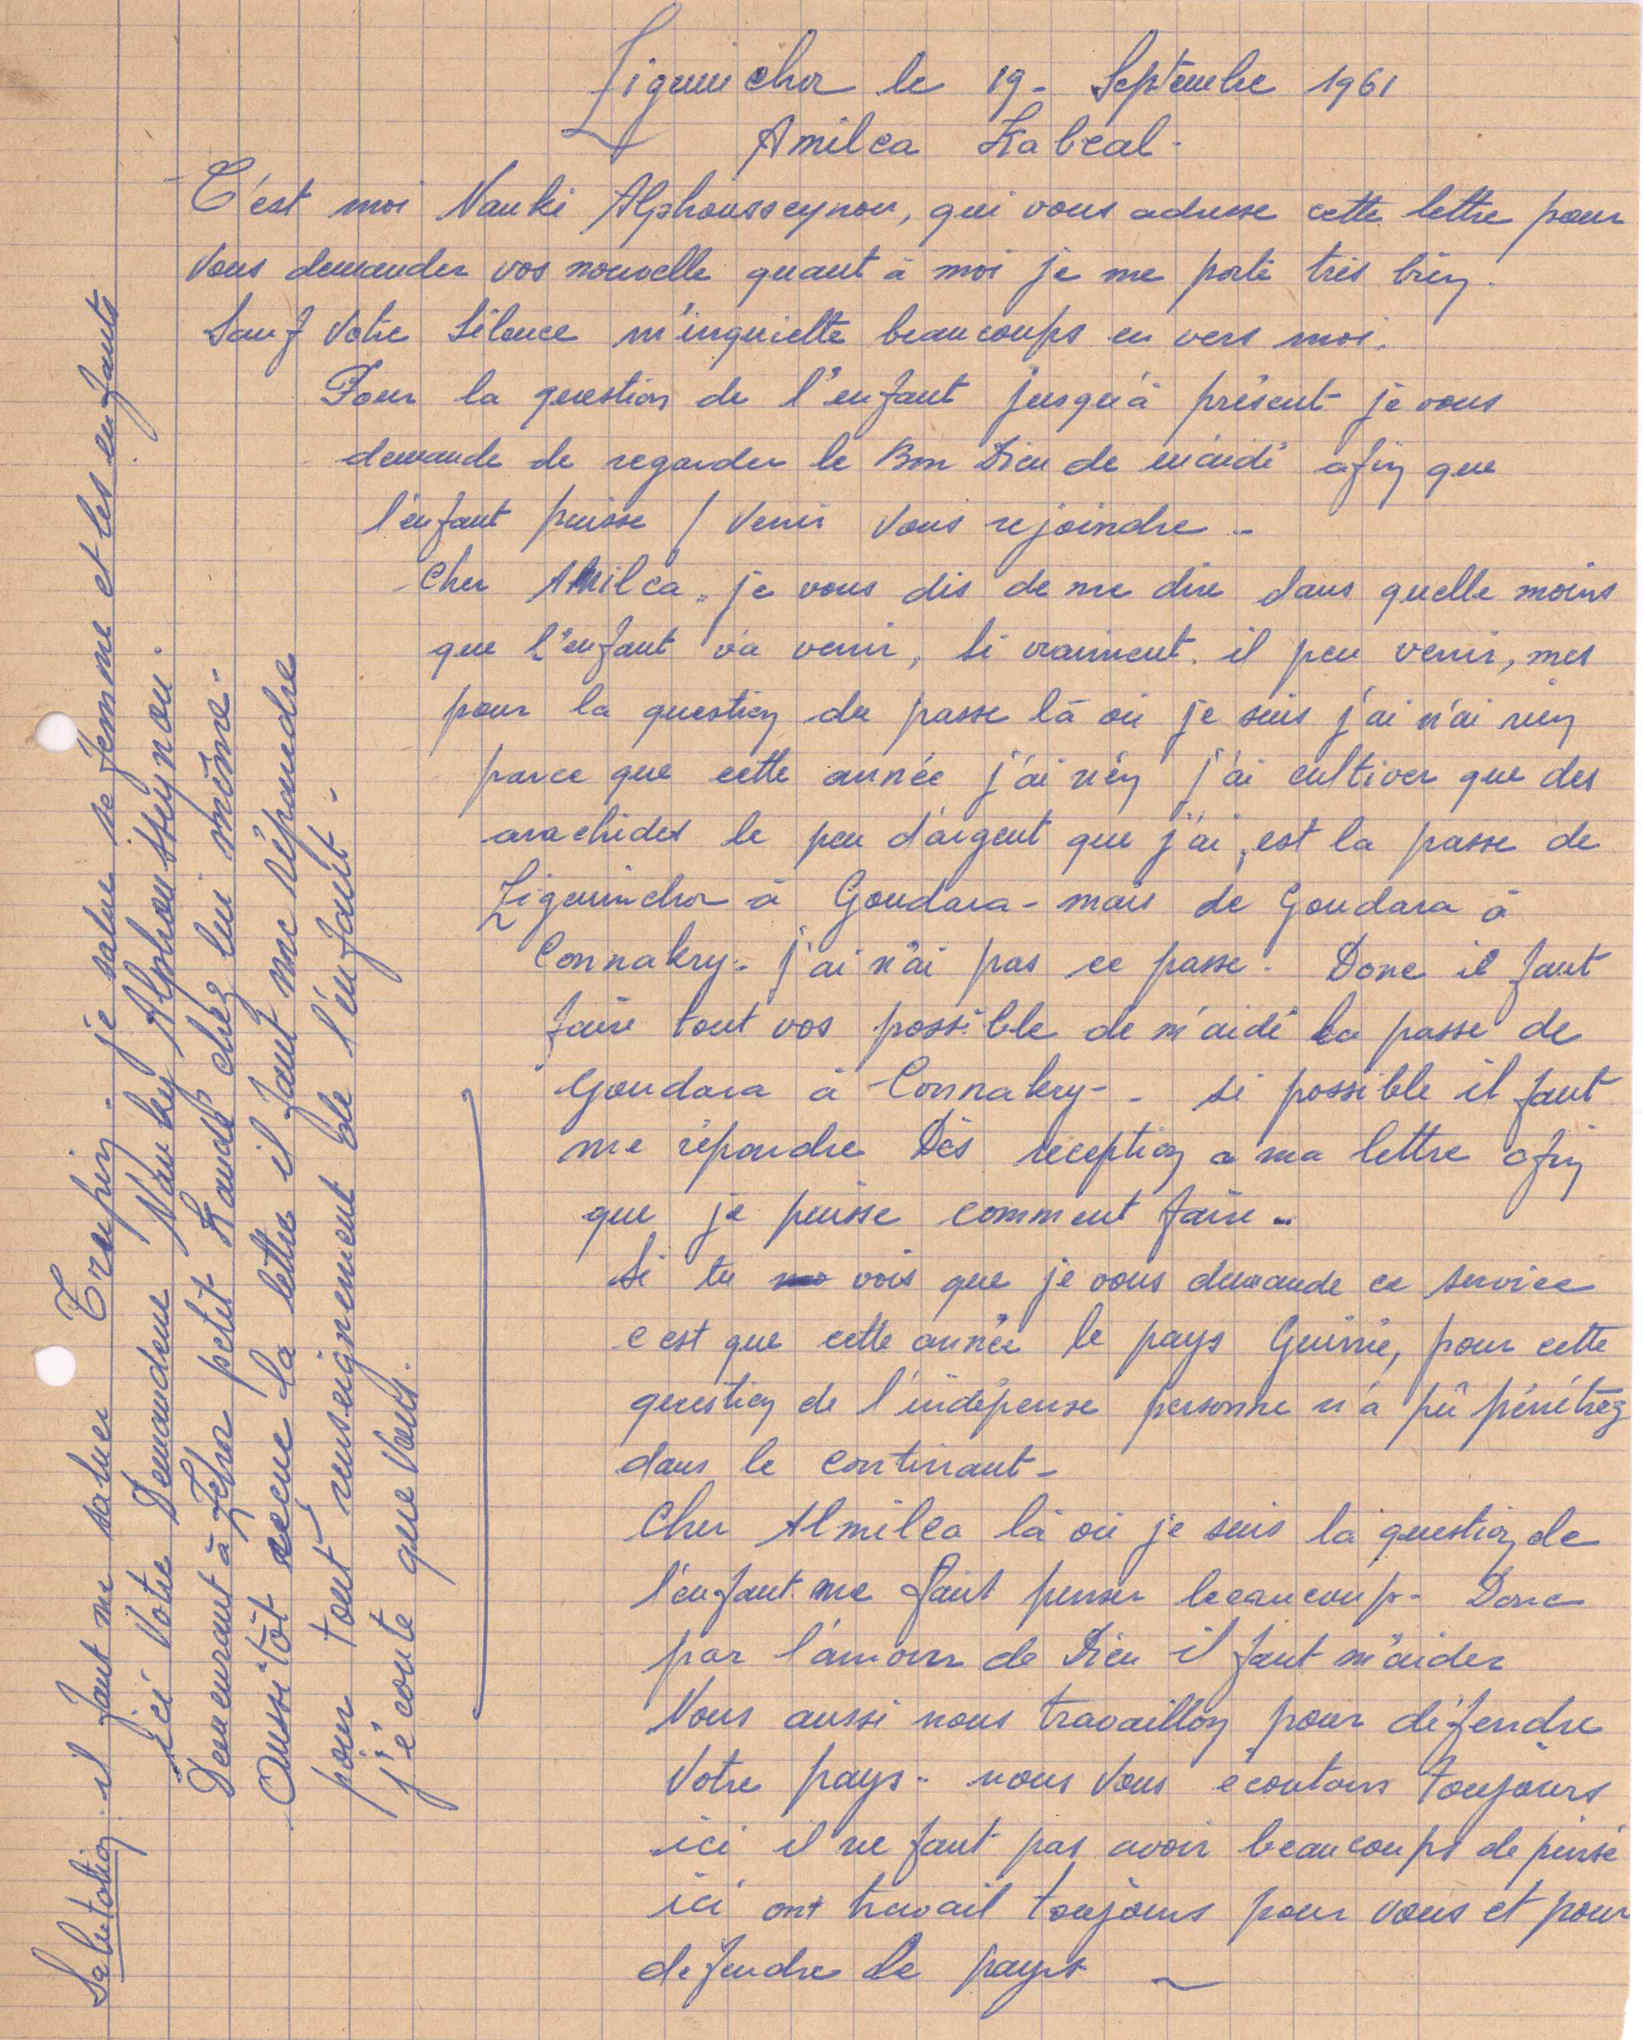 Ziguinchor le 19- Septembre 1961
Amilca Kabral-
C'est moi Nanki Alphousseynou, qui vous adresse cette lettre pour
vous demander vos nouvelle quant à moi je me porte très bien.
Sauf votre silence m'inquiette beaucoups en vers moi.
Pour la question de l'enfant jusqu'à présent je vous
demande de regarder le Bon Dieu de m'aidé afin que
l'enfant puisse / venir vous rejoindre -
Cher Amilca. je vous dis de me dire dans quelle moins
que l'enfant va venir, si vraiment. il peu venir, mes
pour la question du passe là où je suis j'ai n'ai rien
parce que cette année j'ai rien j'ai cultiver que des
arachides le peu d'argent que j'ai, est la passe de
Ziguinchor à Goudara - mais de Goudara à
Connakry - j'ai n'ai pas ce passe. Donc il faut
faire tout vos possible de m'aidé la passe de
Goudara à Connakry - - si possible il faut
me répondre Dès reception a ma lettre afin
que je puisse comment faire -
Si tu vois que je vous demande ce service
c'est que cette année le pays Guinie, pour cette
question de l'indépense personne n'a pû pénétrez
dans le continant -
Cher Almilca là où je suis la question de
l'enfant me faut penser beaucoup - Donc
par l'amour de Dieu il faut m'aider
Nous aussi nous travaillon pour défendre
votre pays - nous vous écoutons toujours
ici il ne faut pas avoir beaucoups de pensé
ici ont travail toujours pour vous et pour
defendre le pays ~
Salutation. il faut me saluer Craspin. je salue se femme et les enfants
ici votre Demandeur Nanky Alphousseynou.
Demeurant à Zehor petit Kandé chez lui même -
Aussitôt reçue la lettre il faut me répondre
pour tout renseignement de l'enfant -
j'écoute que vous.